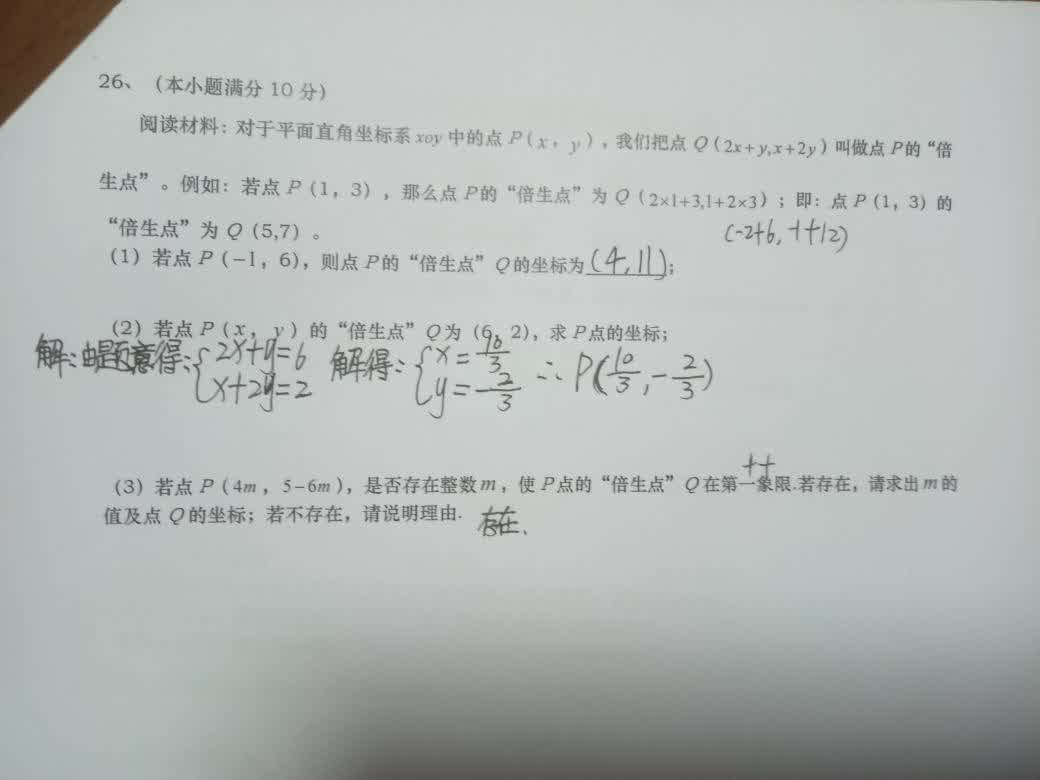 26、（本小题满分 10 分）
阅读材料：对于平面直角坐标系 xoy 中的点 P（x，y），我们把点 Q（2x+y,x+2y）叫做点 P的“倍
生点”。例如：若点 P（1，3），那么点 P的“倍生点”为 Q（2×1+3,1+2×3）；即：点 P（1，3）的
“倍生点”为 Q（5,7）。
(-2+6, -1+12)
（1）若点 P（−1，6），则点 P的“倍生点”Q的坐标为(4,11)；
（2）若点 P（x，y）的“倍生点”Q为（6，2），求 P点的坐标；
解：由题意得：{2x+y=6 x+2y=2 解得：{x=10/3 y=-2/3 ∴P(10/3,-2/3)
++
（3）若点 P（4m，5−6m），是否存在整数m，使 P点的“倍生点”Q在第一象限.若存在，请求出m的
值及点 Q的坐标；若不存在，请说明理由.
存在.